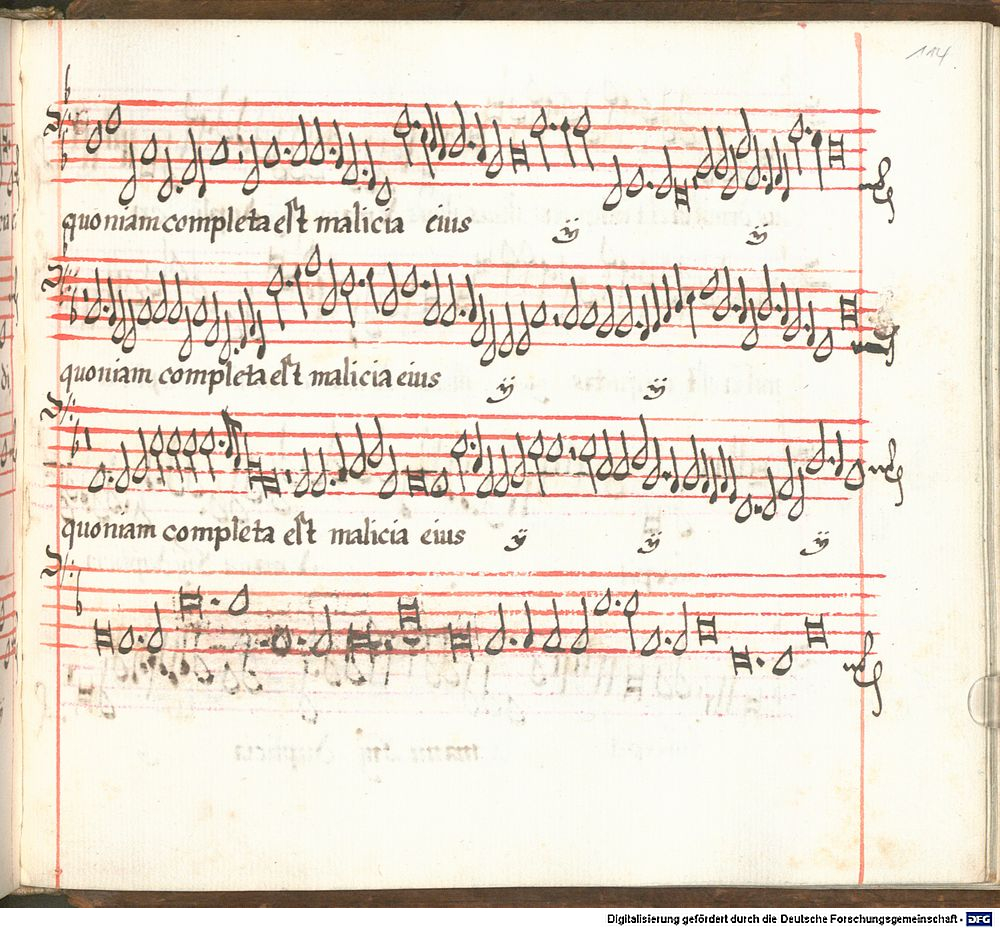 114
quoniam completa est malicia eius ij ij
quoniam completa est malicia eius ij ij
quoniam completa est malicia eius ij ij ij
Digitalisierung gefördert durch die Deutsche Forschungsgemeinschaft - DFG